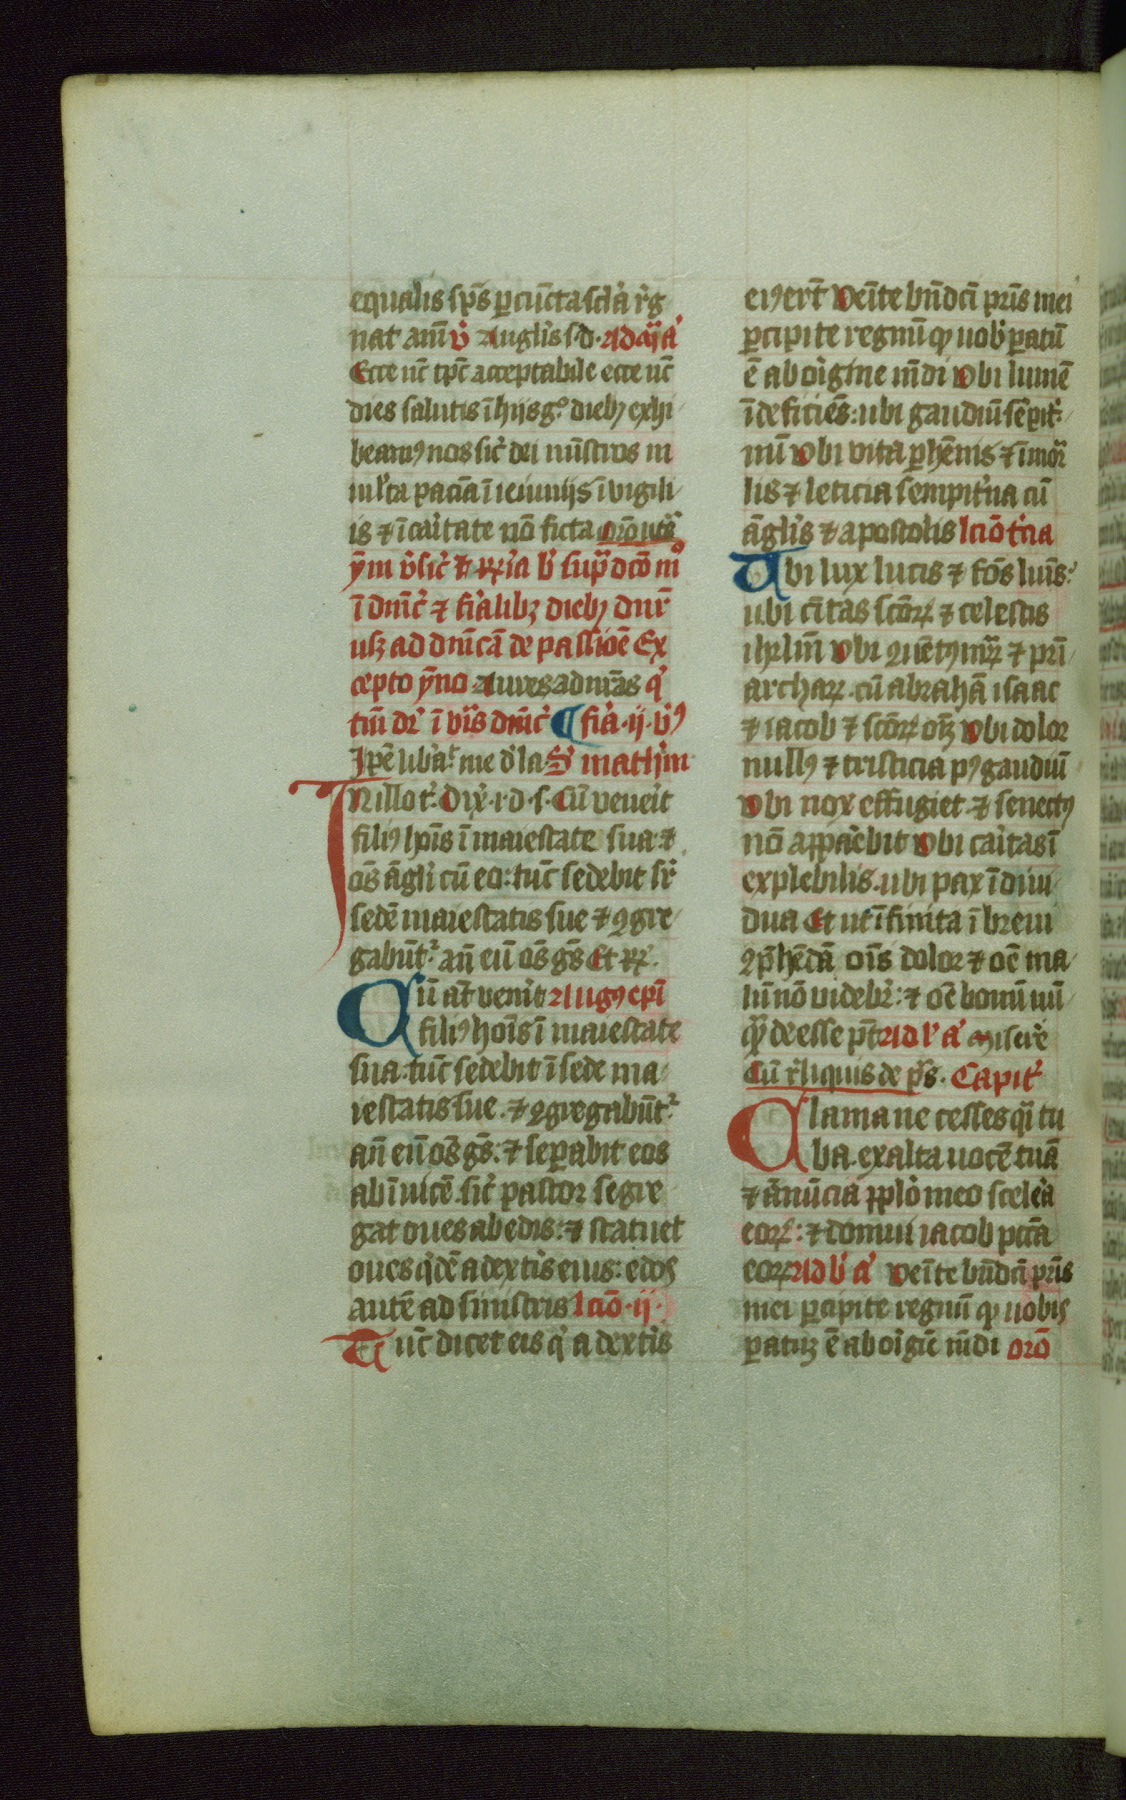 equalis sp̄s ꝑ cūcta sclā rēg
nat amē v̓ Angl̓is s·d· Ad
Ecce nūc tp̄c acceptabile ecce nūc
dies salutis ī hijs gͦ diebꝫ exhi
beamꝰ nos sic̓ dei mīstros in
mĺta paciā ī ieiunijs ī vigili
is ⁊ ī caritate nō ficta orō
ym
ī dnīc̓ ⁊ fīalibꝫ diebꝫ
usꝫ ad dnīcā de passioē Ex
cepto ȳno Aures ad nr̄as q̓
tm̄ dr̄ ī vīis dnīc̓ ¶ fīa · ij · 
Ip̄e lib̓a me d̓ la S̓ math̄m
In illo t̓ Dix̓·i·d·s· Cū veneīt
filiꝰ hoīs ī maiestate sua: ⁊
oēs āgl̓i cū eo: tūc sedebit sr̄
sedē maiestatis sue ⁊ ꝯgre
gabūt᷑ añ eū oēs gēs Et
Cū at̄ venit̓ Augꝰ ep̄i
filiꝰ hoīs ī maiestate
sua tūc sedebit ī sede ma
iestatis sue ⁊ ꝯgregabūt᷑
añ eū oēs gēs: ⁊ sepabit eos
ab īuicē sic̓ pastor segre
gat oues ab edis: ⁊ statuet
oues q̓dē a dext̓is eius: edos
autē ad sinistris lc̄io · ij ·
Tūc dicet eis q̓ a dext̓is
eiꝰ ert̄ Venīte bn̄dc̄i pr̄is mei
ꝑcipite regnū qꝫ uob̓ ꝑatū
ē ab origine mūdi Vbi lumē
īdeficiēs: ubi gaudiū sēpit̓
nū Vbi vita ꝑhēnis ⁊ īmor̄
lis ⁊ leticia sempit̓na cū
āgl̓is ⁊ apostolis lc̄io t̓cia
Vbi lux lucis ⁊ fōs luīs:
ubi cīitas scōꝝ ⁊ celestis
ihrlm̄ Vbi ꝯuētꝰ mrꝝ ⁊ pri
archaꝝ· cū abrahā isaac
⁊ iacob ⁊ scōꝝ oīꝫ Vbi dolor
nullꝰ ⁊ tristicia pꝰ gaudiū
Vbi nox effugiet ⁊ senectꝰ
nō appaēbit Vbi caritas ī
explebilis· ubi pax īdiui
dua Et ut īfinita ī breui
ꝯp̄hēdā oīs dolor ⁊ oē ma
lū nō videbr̄: ⁊ oē bonū nū
qͣ deesse pt̄ Ad l̓ a̓ Misere
Cū reliquis de ps̄· Capit̓
Clama ne cesses q̄i tu
ba· exalta uocē tuā
⁊ ānūcia ppl̓o meo sceleā
eoꝝ: ⁊ domui iacob pctā
eoꝝ Ad b̓ a̓ Venīte bn̄dc̄i pr̄is
mei ꝑcipite regnū qꝫ uobis
ꝑatuꝫ ē ab origīe mūdi orō